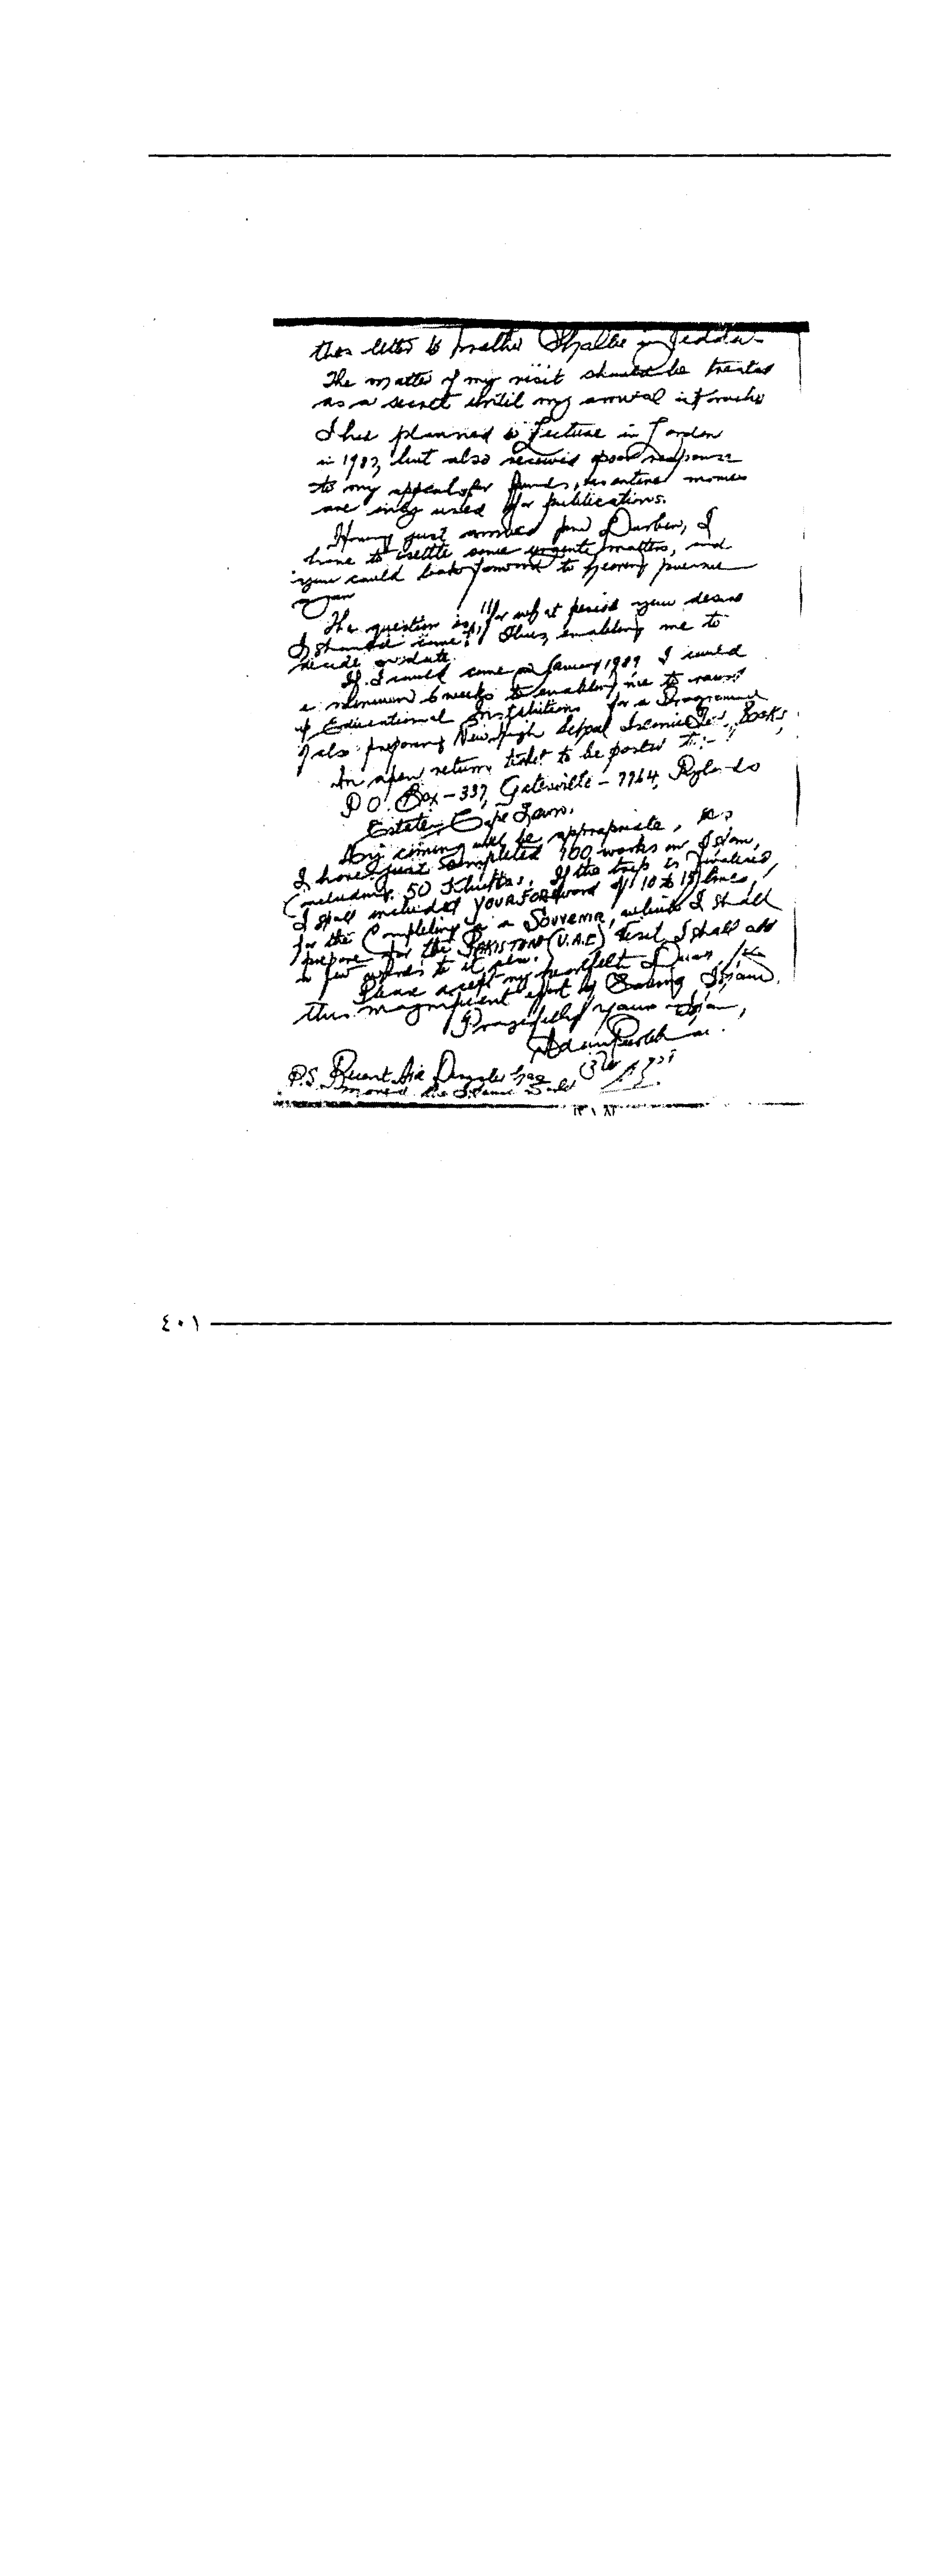 this letter to brother in Jedda.
The matter of my visit should be treated
as a secret until my arrival
I had planned to Lecture in London
in 1983, but also received poor response
to my appeal for funds, as entire monies
are only used for publications.
Having just arrived from Durban, I
have to settle some urgent matters, and
you could look forward to hearing from me
again
The question is, "for what period you desire
I should come?" Thus, enabling me to
decide on date.
If I could come in January 1989 I could
a minimum 6 weeks to enabling me to
of Educational Institutions for a Programme
I also preparing New High School Islamic Books,
An open return ticket to be posted to:-
P.O. Box - 337, Gatesville - 7764, Rylands
Estate, Cape Town.
My coming will be appropriate, as
I have just completed 100 works on Islam,
(including 50 Khutbas. If the trip is finalised,
I shall included YOUR FOREword of 10 to 15 lines,
for the Completing in a Souvenir, which I shall
prepare for the PAKISTAN (U.A.E) visit. I shall add
a few words to it also.
Please accept my heartfelt Duas, for
this magnificent effort by Islam.
yours in Islam,
P.S. Recent Air
the Islamic World
٤٠١